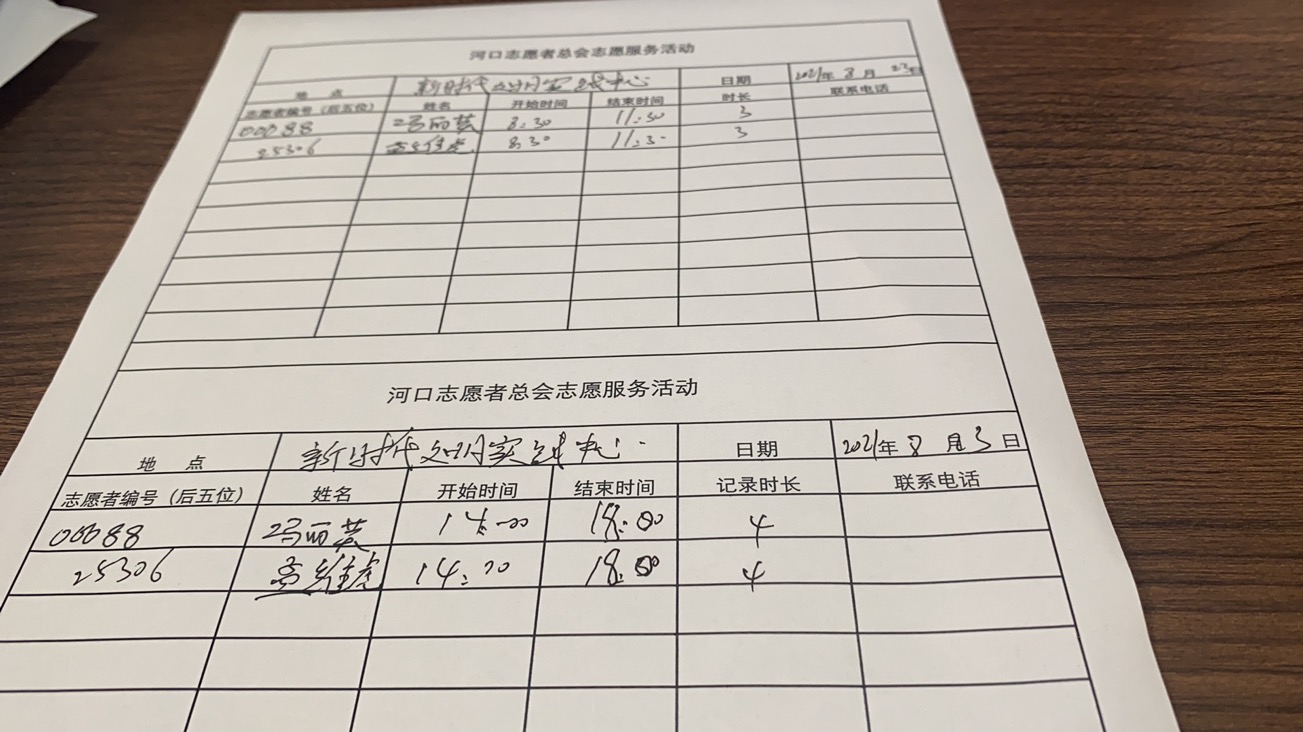 河口志愿者总会志愿服务活动
地 点 新时代文明实践中心 日期 2021年 8 月 23日
志愿者编号（后五位） 姓名 开始时间 结束时间 时长 联系电话
00088 冯丽芸 8:30 11:30 3
25306 8:30 11:30 3
河口志愿者总会志愿服务活动
地 点 新时代文明实践中心 日期 2021年 8 月 3 日
志愿者编号（后五位） 姓名 开始时间 结束时间 记录时长 联系电话
00088 冯丽芸 14:00 18:00 4
25306 14:00 18:00 4